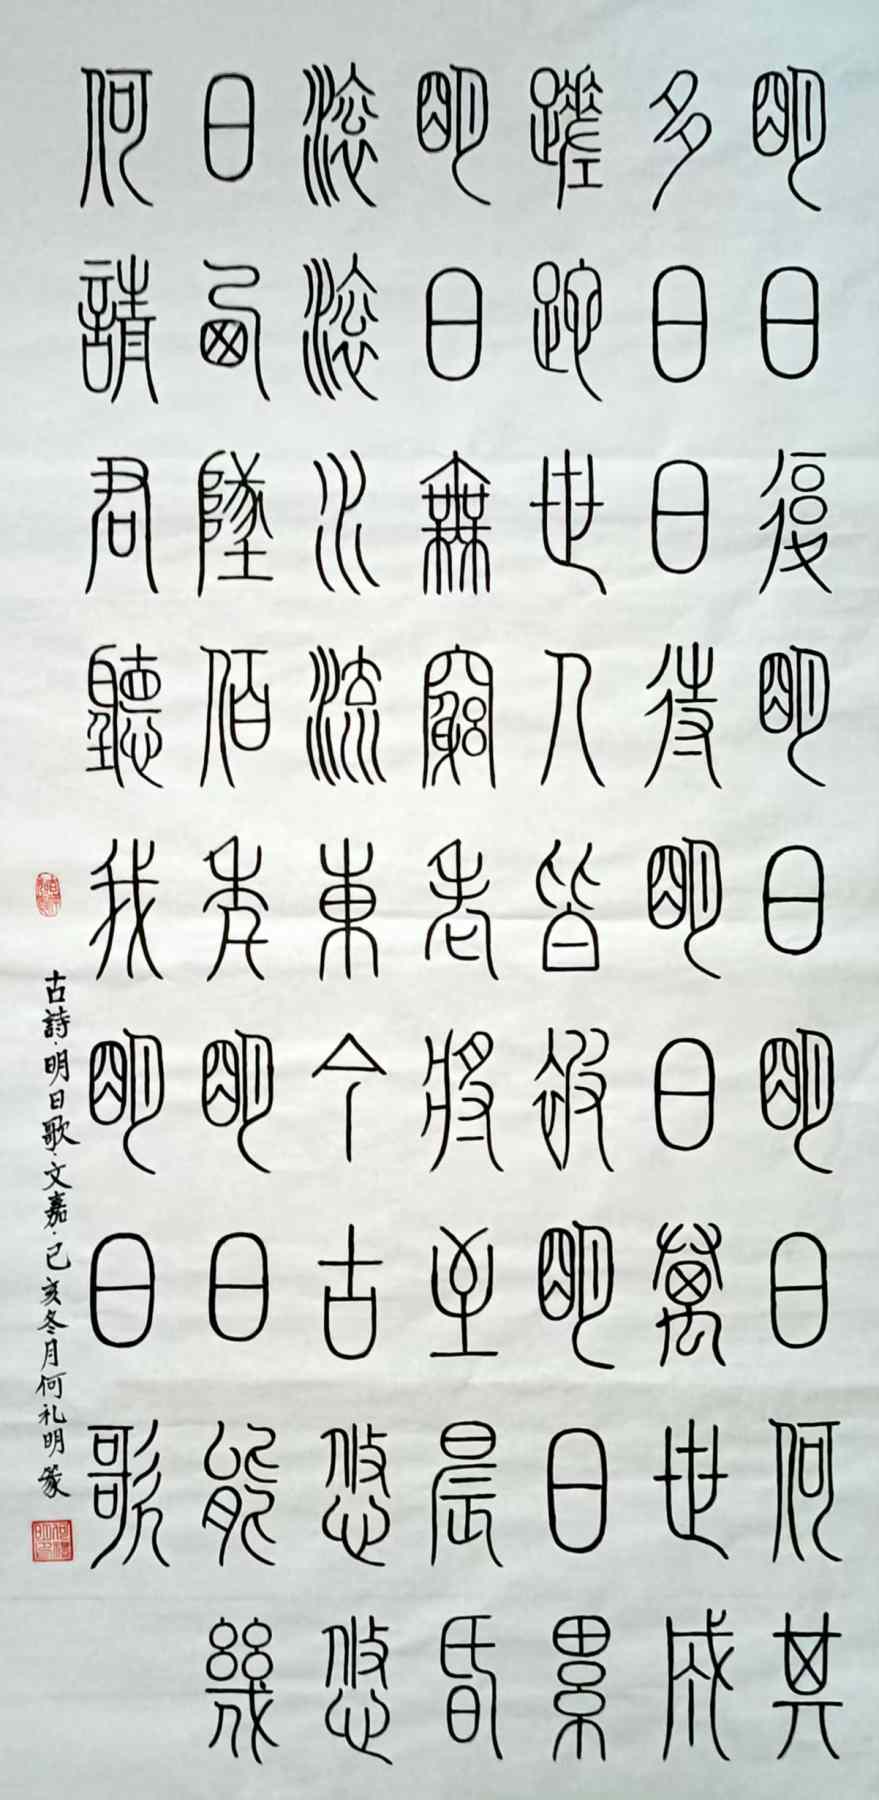 明日復明日明日何其
多日日待明日萬世成
蹉跎世人皆被明日累
明日無窮老將至晨昏
滾滾水流東今古悠悠
日西墜佰年明日能幾
何請君聽我明日歌
古詩·明日歌·文嘉·己亥冬月何礼明篆